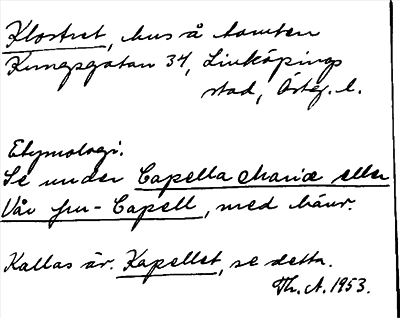 Klostret, hus å tomten
Kungsgatan 34, Linköpings
stad, Östg. l.
Etymologi.
Se under Capella Mariæ eller
Vår fru-Capell, med hänv.
Kallas är. Kapellet, se detta.
Th. A. 1953.